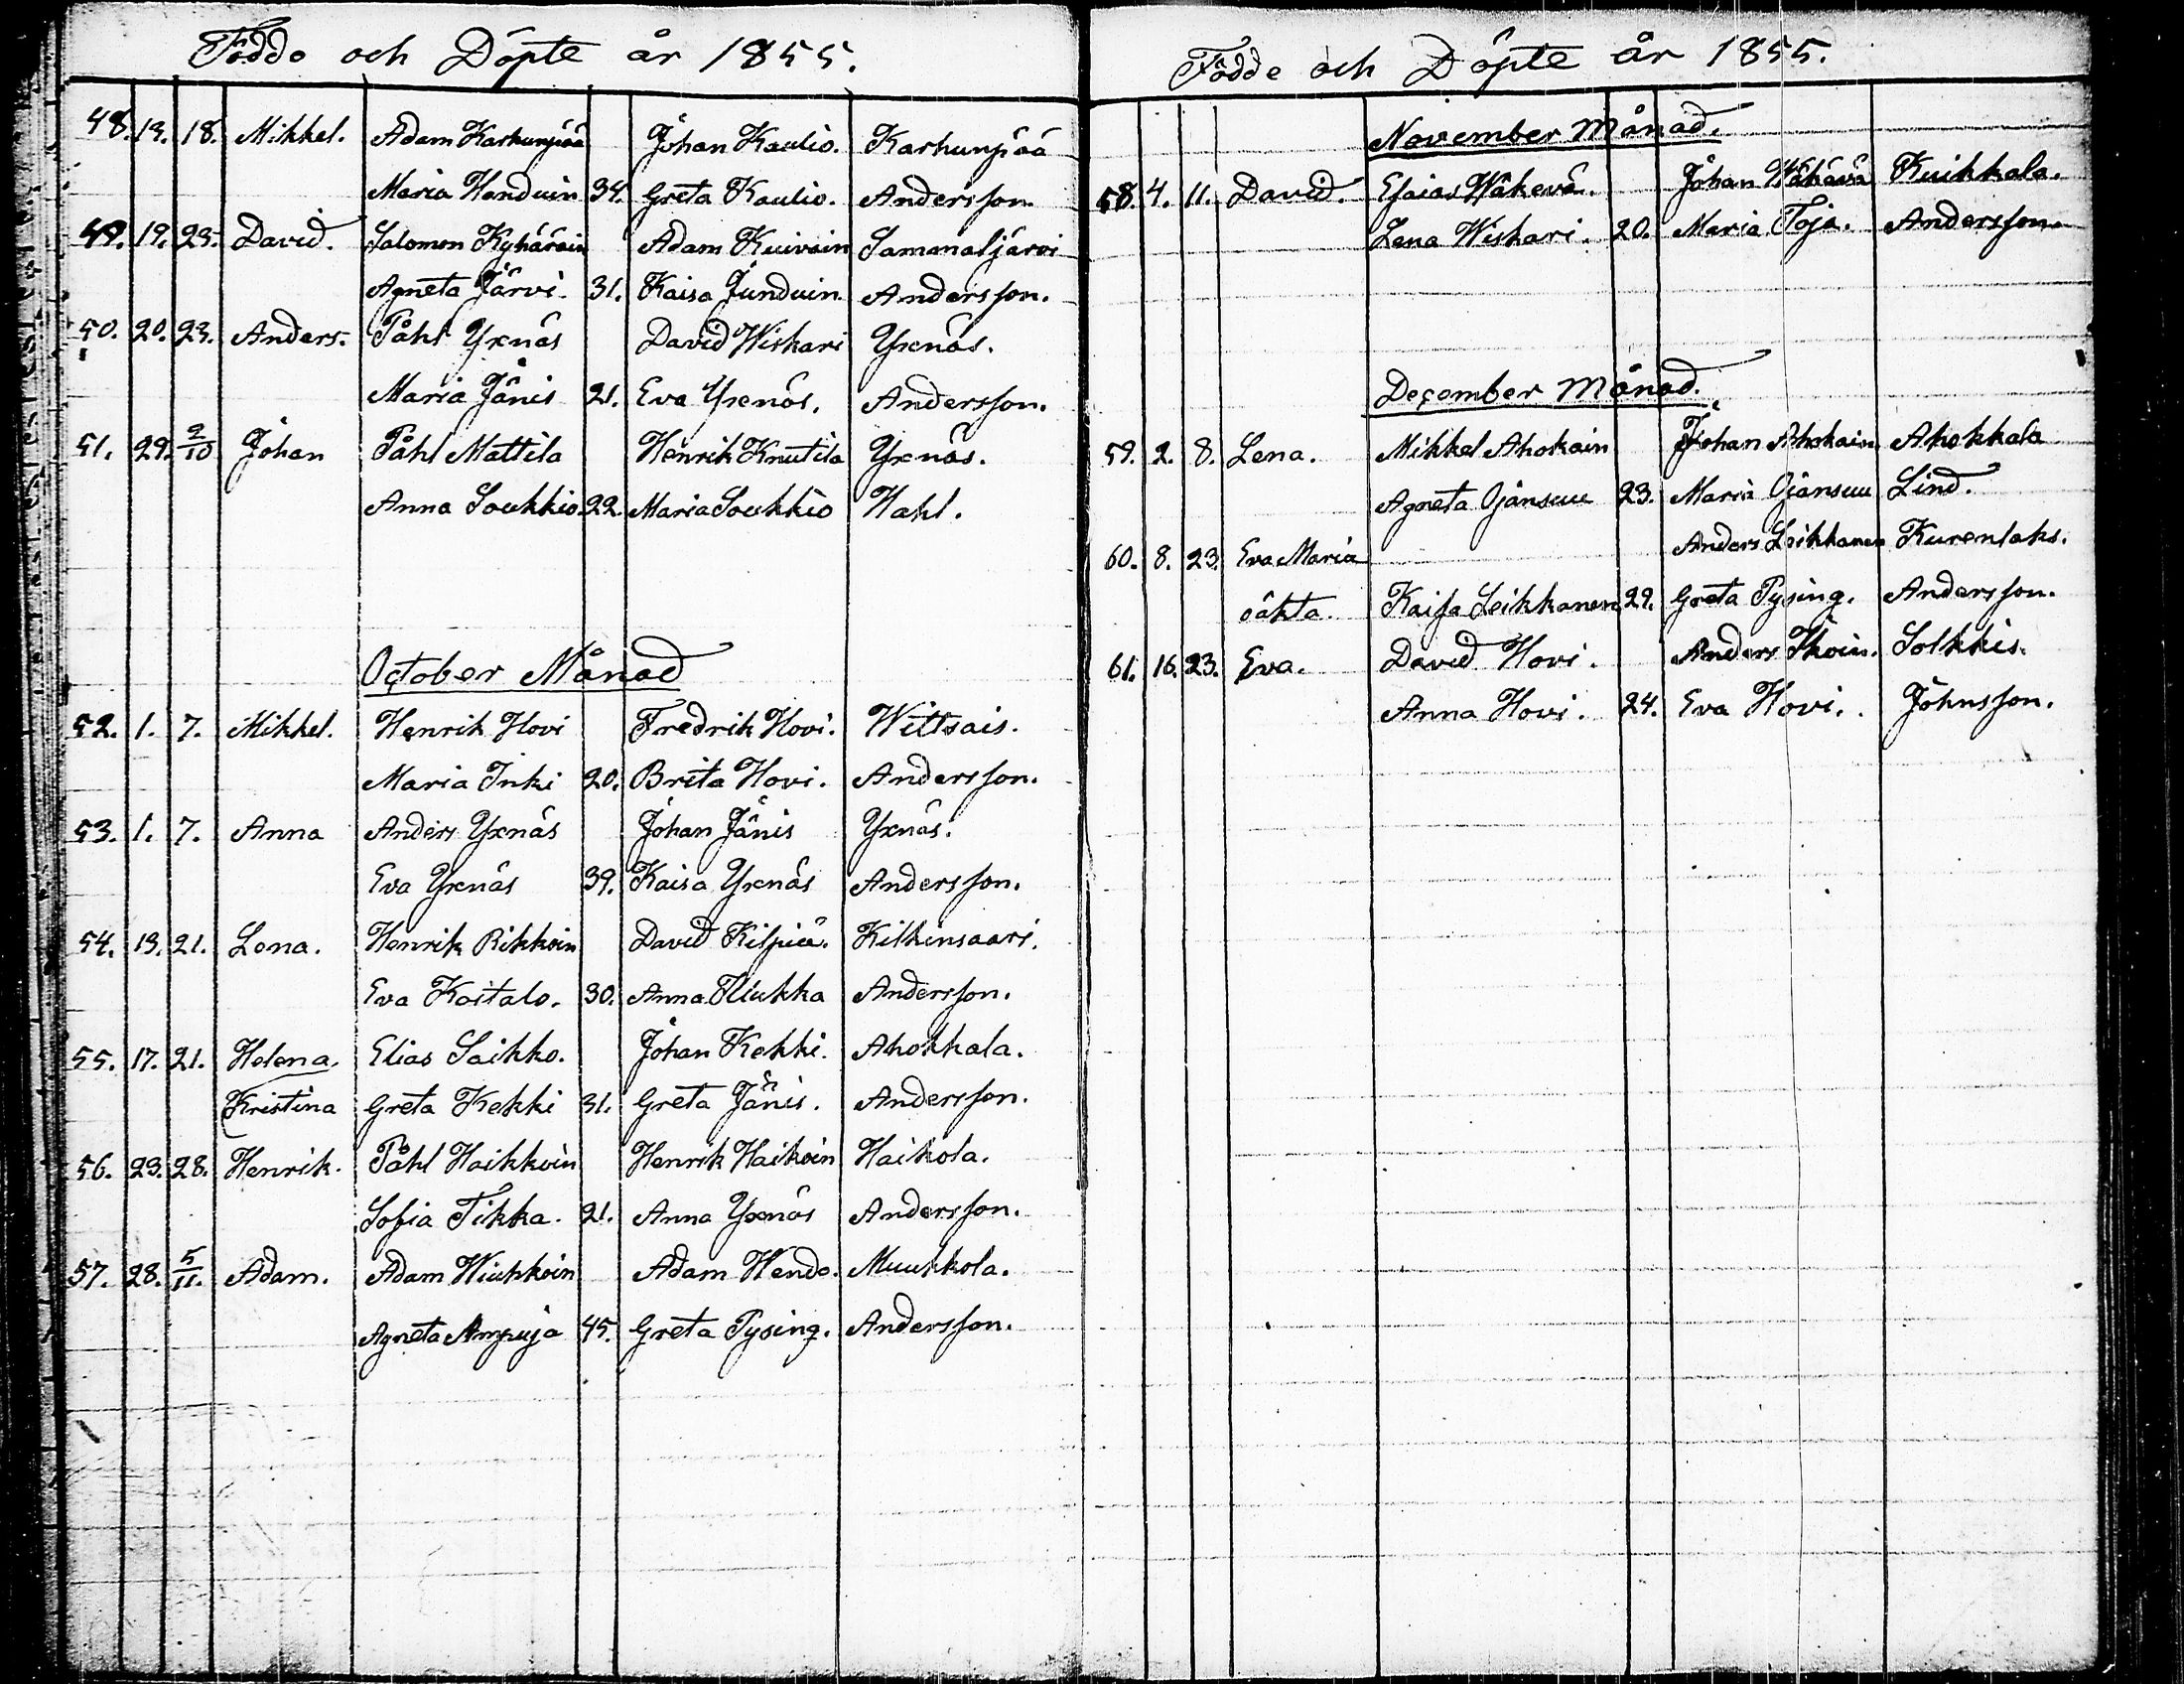 Födde och Döpte år 1855.
48. 13. 18. Mikkel. Adam Karhunpää Johan Kaulio. Karhunpää
Maria Handuin 34. Greta Kaulio. Andersson.
49. 19. 23. David. Salomon Kyhäräin Adam Kuivain Samanaljärvi
Agneta Järvi. 31. Kaisa Junduin Andersson.
50. 20. 23. Anders. Påhl Yxnäs David Wiskari Yxnäs.
Maria Jänis 21. Eva Yxnäs. Andersson.
51. 29. 2/10 Johan Påhl Mattila Henrik Knutila Yxnäs.
Anna Soukkio 22. Maria Soukkio Wahl.
October Månad
52. 1. 7. Mikkel. Henrik Hovi Fredrik Hovi. Wittsais.
Maria Inki 20. Brita Hovi. Andersson.
53. 1. 7. Anna Anders Yxnäs Johan Jänis Yxnäs.
Eva Yxnäs 39. Kaisa Yxnäs Andersson.
54. 13. 21. Lena. Henrik Rikkoin David Kilpiä. Kilkinsaari.
Eva Koitalo. 30. Anna Andersson.
55. 17. 21. Helena. Elias Saikko. Johan Kekki. Ahokkala.
Kristina Greta Kekki 31. Greta Jänis. Andersson.
56. 23. 28. Henrik. Påhl Haikkoin Henrik Haikoin Haikola.
Sofia Tikka. 21. Anna Yxnäs Andersson.
57. 28. 5/11. Adam. Adam Wiukkoin Adam Hendo. Muukkola.
Agneta Ampuja 45. Greta Pysing. Andersson.
Födde och Döpte år 1855.
November Månad.
58. 4. 11. David. Esaias Wäkevä. Johan Wäkävä Kuikkala.
Lena Wiskari. 20. Maria Toja. Andersson.
December Månad.
59. 2. 8. Lena. Mikkel Ahokain Johan Ahokain Ahokkala
Agneta Ojansuu 23. Maria Ojansuu Lind.
60. 8. 23. Eva Maria Anders Leikkanen Kurenlaks.
oäkta. Kaisa Leikkanen 29. Greta Pysing. Andersson.
61. 16. 23. Eva. David Hovi. Anders Ikoin. Solkkis.
Anna Hovi. 24. Eva Hovi. Johnsson.